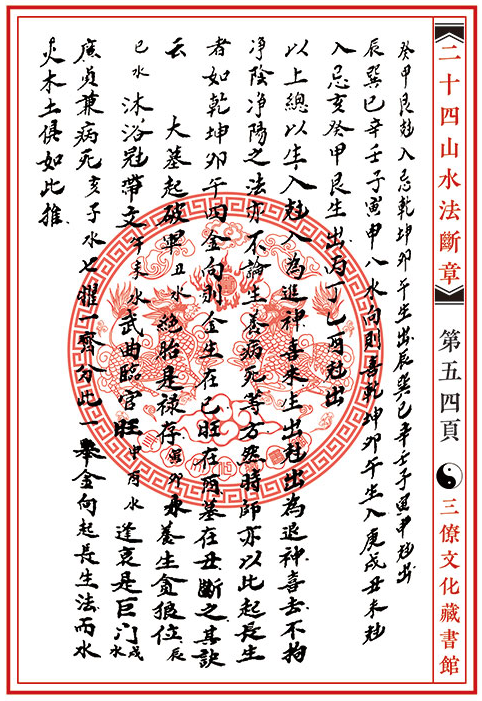 二十四山水法斷章
第五四頁
三僚文化藏書館
癸甲艮尅入忌乾坤卯午生出辰巽巳辛壬子寅申尅出
辰巽巳辛壬子寅申八水向則喜乾坤卯午生入庚戌丑未尅
入忌亥癸甲艮生出丙丁乙酉尅出
以上總以生入尅入為進神喜來生出尅出為退神喜去不拘
净陰净陽之法亦不論生養病死等方然時師亦以此起長生
者如乾坤卯午四金向則金生在巳旺在酉墓在丑斷之其訣
云 大墓起破軍丑水絶胎是禄存寅卯水養生貪狼位辰
巳水沐浴冠帶文午未水武曲臨官旺申酉水逢衰是巨门戌水
廉貞兼病死亥子水七曜一齊分此一舉金向起長生法而水
火木土俱如此推